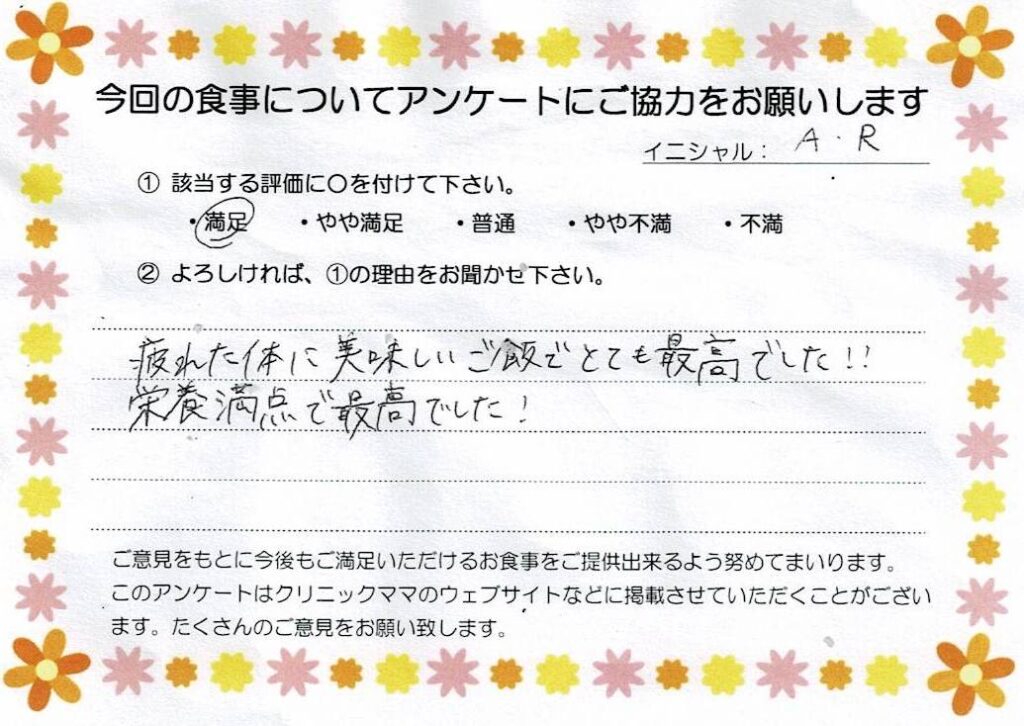 今回の食事についてアンケートにご協力をお願いします
イニシャル： A・R
① 該当する評価に〇を付けて下さい。
・満足 ・やや満足 ・普通 ・やや不満 ・不満
② よろしければ、①の理由をお聞かせ下さい。
疲れた体に美味しいご飯でとても最高でした!!
栄養満点で最高でした!
ご意見をもとに今後もご満足いただけるお食事をご提供出来るよう努めてまいります。
このアンケートはクリニックママのウェブサイトなどに掲載させていただくことがござい
ます。たくさんのご意見をお願い致します。